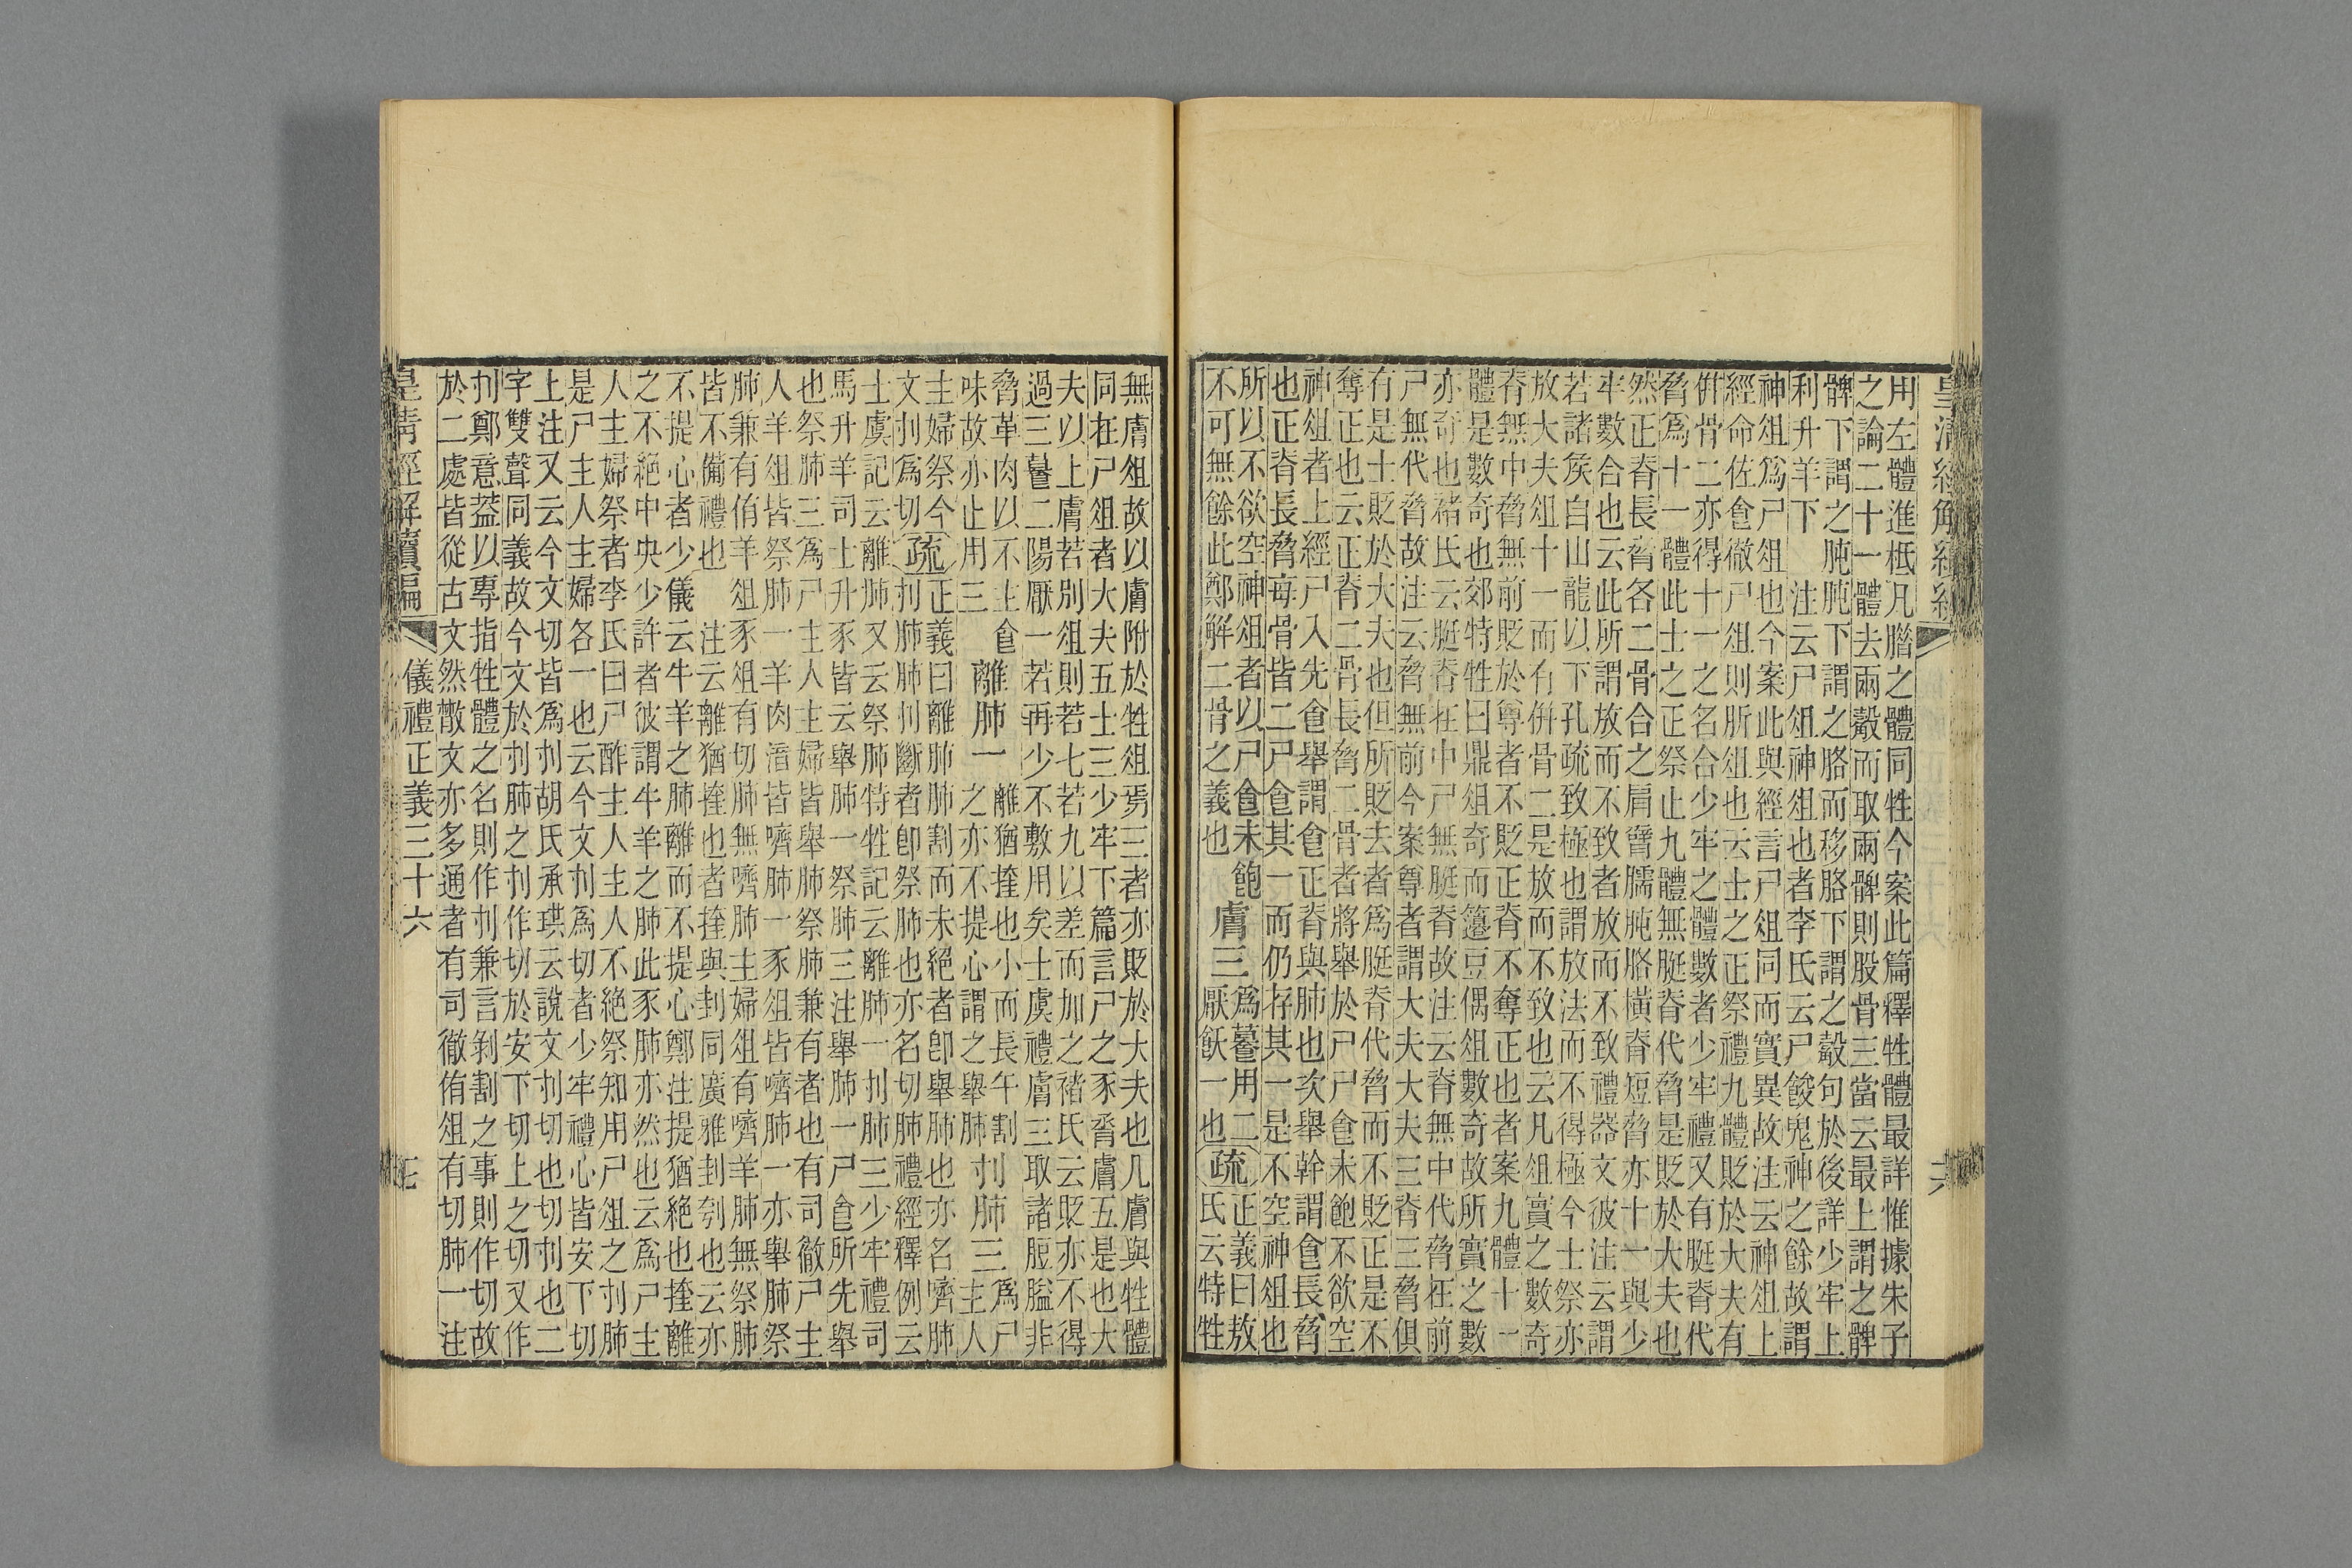 皇清經解續編
用左體進柢凡腊之體同牲今案此篇釋牲體最詳惟據朱子
之論二十一體去兩觳而取兩髀則股骨三當云最上謂之髀
髀下謂之肫肫下謂之胳而移胳下謂之觳句於後詳少牢上
利升羊下　注云尸俎神俎也者李氏云尸餕鬼神之餘故謂
神俎爲尸俎也今案此與經言尸俎同而實異故注云神俎上
經命佐食徹尸俎則肵俎也云士之正祭禮九體貶於大夫有
倂骨二亦得十一之名合少牢之體數者少牢禮又有脡脊代
脅爲十一體此士之正祭止九體無脡脊代脅是貶於大夫也
然正脊長脅各二骨合之肩臂臑肫胳橫脊短脅亦十一與少
牢數合也云此所謂放而不致者放而不致禮器文彼注云謂
若諸矦自山龍以下孔疏致極也謂放法而不得極今士祭亦
放大夫俎十一而有倂骨二是放而不致也云凡俎實之數奇
脊無中脅無前貶於尊者不貶正脊不奪正也者案九體十一
體是數奇也郊特牲曰鼎俎奇而籩豆偶俎數奇故所實之數
亦奇也褚氏云脡脊在中尸無脡脊故注云脊無中代脅在前
尸無代脅故注云脅無前今案尊者謂大夫大夫三脊三脅俱
有是士貶於大夫也但所貶去者爲脡脊代脅而不貶正是不
奪正也云正脊二骨長脅二骨者將舉於尸尸食未飽不欲空
神俎者上經尸入先食舉謂食正脊與肺也次舉幹謂食長脅
也正脊長脅每骨皆二尸食其一而仍存其一是不空神俎也
所以不欲空神俎者以尸食未飽
不可無餘此鄭解二骨之義也
膚三
用二
厭飫一也
疏
正義曰敖
氏云特牲
無膚俎故以膚附於牲俎焉三者亦貶於大夫也凡膚與牲體
同在尸俎者大夫五士三少牢下篇言尸之豕脀膚五是也大
夫以上膚若別俎則若七若九以差而加之褚氏云貶亦不得
過三二陽厭一若再少不敷用矣士虞禮膚三取諸脰膉非
脅革肉以不主食
味故亦止用三
離肺一
離猶㧗也小而長午割
之亦不提心謂之舉肺
刌肺三
爲尸
主人
主婦祭今
文刌爲切
疏
正義曰離肺肺割而未絕者卽舉肺也亦名嚌肺
刌肺肺刌斷者卽祭肺也亦名切肺禮經釋例云
士虞記云離肺又云祭肺特牲記云離肺一刌肺三少牢禮司
馬升羊司士升豕皆云舉肺一祭肺三注舉肺一尸食所先舉
也祭肺三爲尸主人主婦皆舉肺祭肺兼有者也有司徹尸主
人羊俎皆祭肺一羊肉湇皆嚌肺一豕俎皆嚌肺一亦舉肺祭
肺兼有侑羊俎豕俎有切肺無嚌肺主婦俎有嚌羊肺無祭肺
皆不備禮也　注云離猶㧗也者㧗與刲同廣雅刲刳也云亦
不提心者少儀云牛羊之肺離而不提心鄭注提猶絕也㧗離
之不絕中央少許者彼謂牛羊之肺此豕肺亦然也云爲尸主
人主婦祭者李氏曰尸酢主人主人不絕祭知用尸俎之刌肺
是尸主人主婦各一也云今文刌爲切者少牢禮心皆安下切
上注又云今文切皆爲刌胡氏承珙云說文刌切也切刌也二
字雙聲同義故今文於刌肺之刌作切於安下切上之切又作
刌鄭意葢以專指牲體之名則作刌兼言剝割之事則作切故
於二處皆從古文然散文亦多通者有司徹侑俎有切肺一注
皇清經解續編
儀禮正義三十六